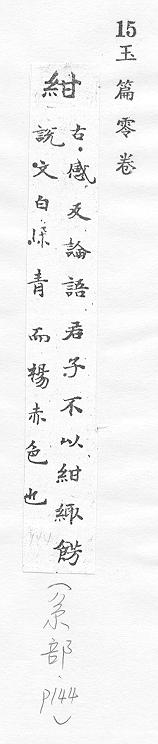 15
玉篇零卷
紺
古感反論語君子不以紺緅餝
說文白㴱青而楊赤色也
(糸部.P144)